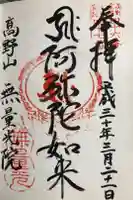 奉拝
平成三十年三月二十一日
阿弥陀如来
高野山
無量光院